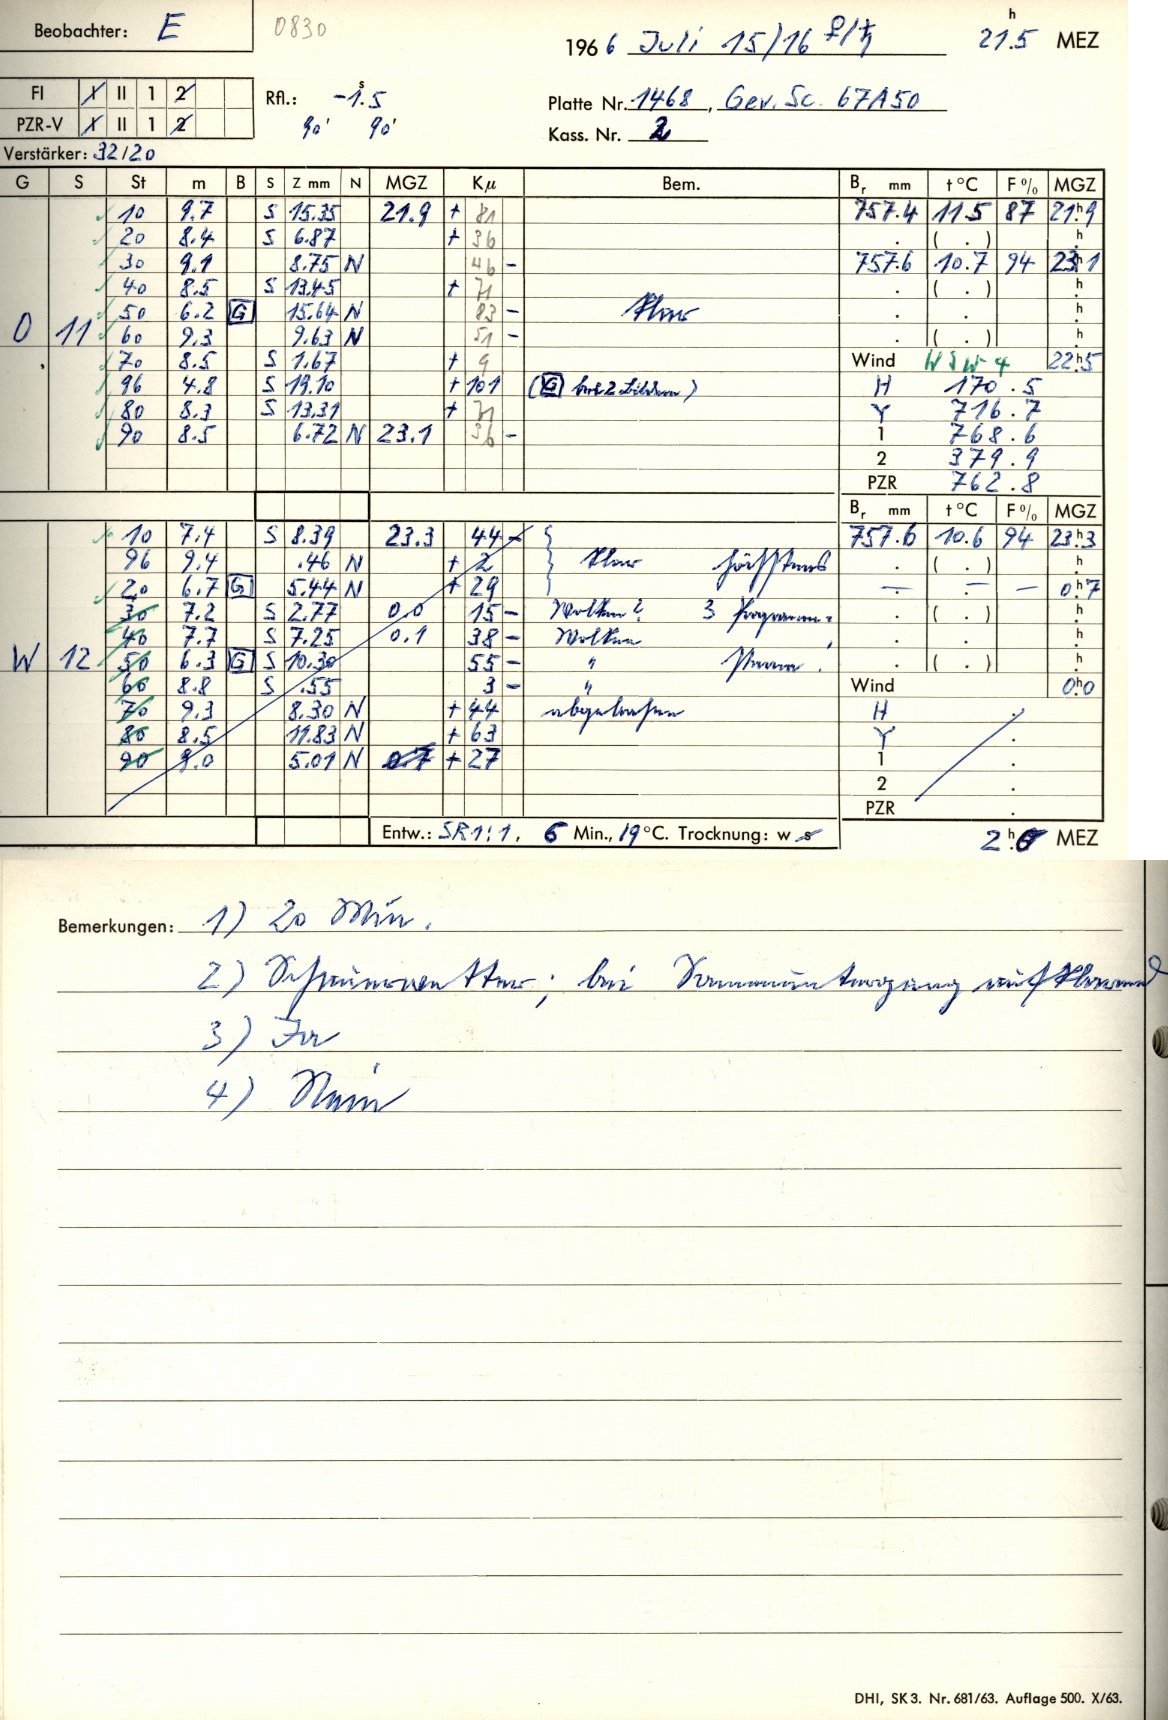 Beobachter: E 0830 h
1966 Juli 15/16 ♀/♄ 21.5 MEZ
FI I II 1 2 Rfl.: -1.5 s Platte Nr. 1468, Gev. Sc. 67A50
PZR-V I II 1 2 90' 90' Kass. Nr. 2
Verstärker: 32/20
G S St m B S Z mm N MGZ Kμ Bem. Br mm t °C F % MGZ
10 9.7 S 15.35 21.9 + 81 757.4 11.5 87 21h9
20 8.4 S 6.87 + 36 . ( . ) h
30 9.1 8.75 N 46 - 757.6 10.7 94 23h1
40 8.5 S 13.45 + 71 . ( . ) h
50 6.2 G 15.64 N 83 - klar . . h
O 11 60 9.3 9.63 N 51 - . ( . ) h
70 8.5 S 1.67 + 9 Wind WSW 4 22h5
96 4.8 S 19.10 + 101 (G bei 2 Bildern) H 170.5
80 8.3 S 13.31 + 71 Y 716.7
90 8.5 6.72 N 23.1 36 - 1 768.6
2 379.9
PZR 762.8
Br mm t °C F % MGZ
10 7.4 S 8.39 23.3 44 - 757.6 10.6 94 23h3
96 9.4 .46 N + 2 klar höchstens . ( . ) h
20 6.7 G 5.44 N + 29 — — — 0h7
30 7.2 S 2.77 0.0 15 - Wolken? 3 Programm- . ( . ) h
40 7.7 S 7.25 0.1 38 - Wolken . . h
W 12 50 6.3 G S 10.30 55 - " Sterne! . ( . ) h
60 8.8 S .55 3 - " Wind 0h0
70 9.3 8.30 N + 44 abgebrochen H .
80 8.5 11.83 N + 63 Y .
90 9.0 5.01 N 0.7 + 27 1 .
2 .
PZR .
Entw.: SR 1:1, 6 Min., 19 °C. Trocknung: w s 2h.0 MEZ
Bemerkungen: 1) 20 Min.
2) Schauerwetter; bei Sonnenuntergang aufklarend
3) Ja
4) Nein
DHI, SK 3. Nr. 681/63. Auflage 500. X/63.